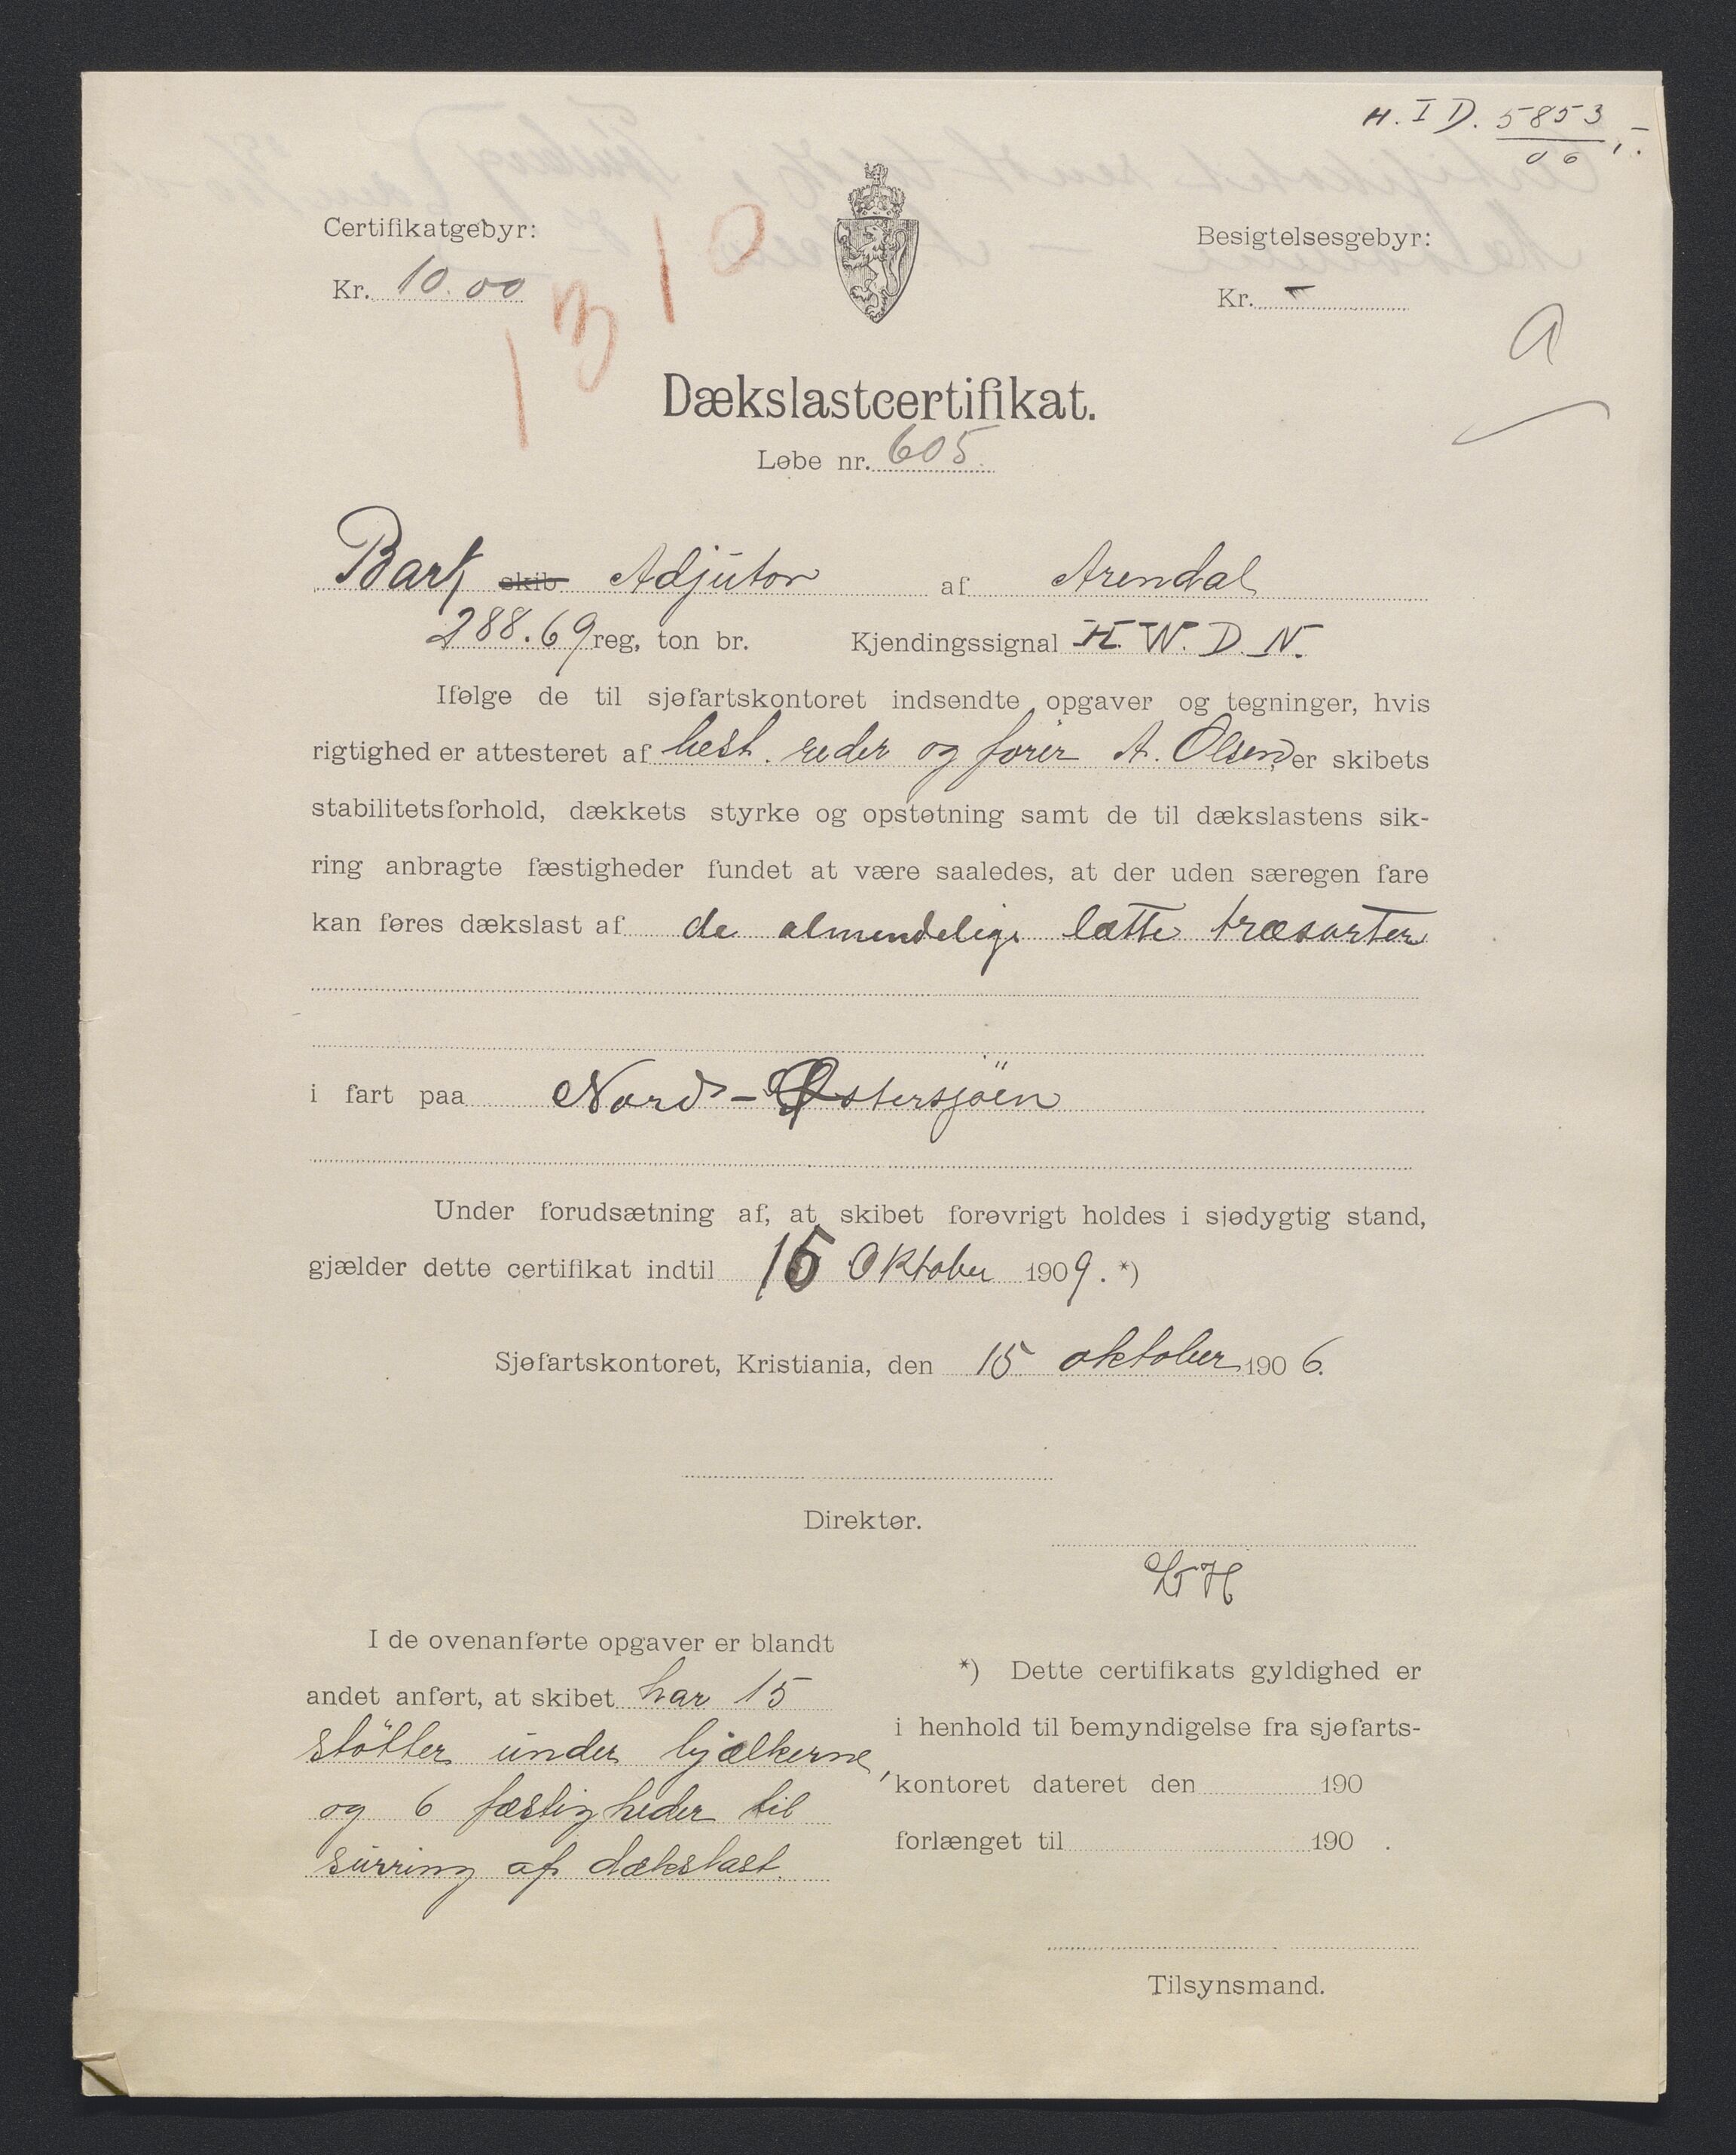 H. I D. 5853/06,-.
Certifikatgebyr:
Kr. 10.00
1310
Besigtelsesgebyr:
Kr. -
a
Dækslastcertifikat.
Løbe nr. 605.
Bark skib Adjutor af Arendal
288.69 reg. ton br. Kjendingssignal H. W. D. N.
Ifølge de til sjøfartskontoret indsendte opgaver og tegninger, hvis
rigtighed er attesteret af best. reder og fører A. Olsen, er skibets
stabilitetsforhold, dækkets styrke og opstøtning samt de til dækslastens sik-
ring anbragte fæstigheder fundet at være saaledes, at der uden særegen fare
kan føres dækslast af de almindelige lætte træsorter
i fart paa Nord-Østersjöen
Under forudsætning af, at skibet forøvrigt holdes i sjødygtig stand,
gjælder dette certifikat indtil 15 Oktober 1909. *)
Sjøfartskontoret, Kristiania, den 15 oktober 1906.
Direktør.
I de ovenanførte opgaver er blandt
andet anført, at skibet har 15
støtter under bjælkerne,
og 6 fæstigheder til
surring af dækslast.
*) Dette certifikats gyldighed er
i henhold til bemyndigelse fra sjøfarts-
kontoret dateret den 190
forlænget til 190 .
Tilsynsmand.